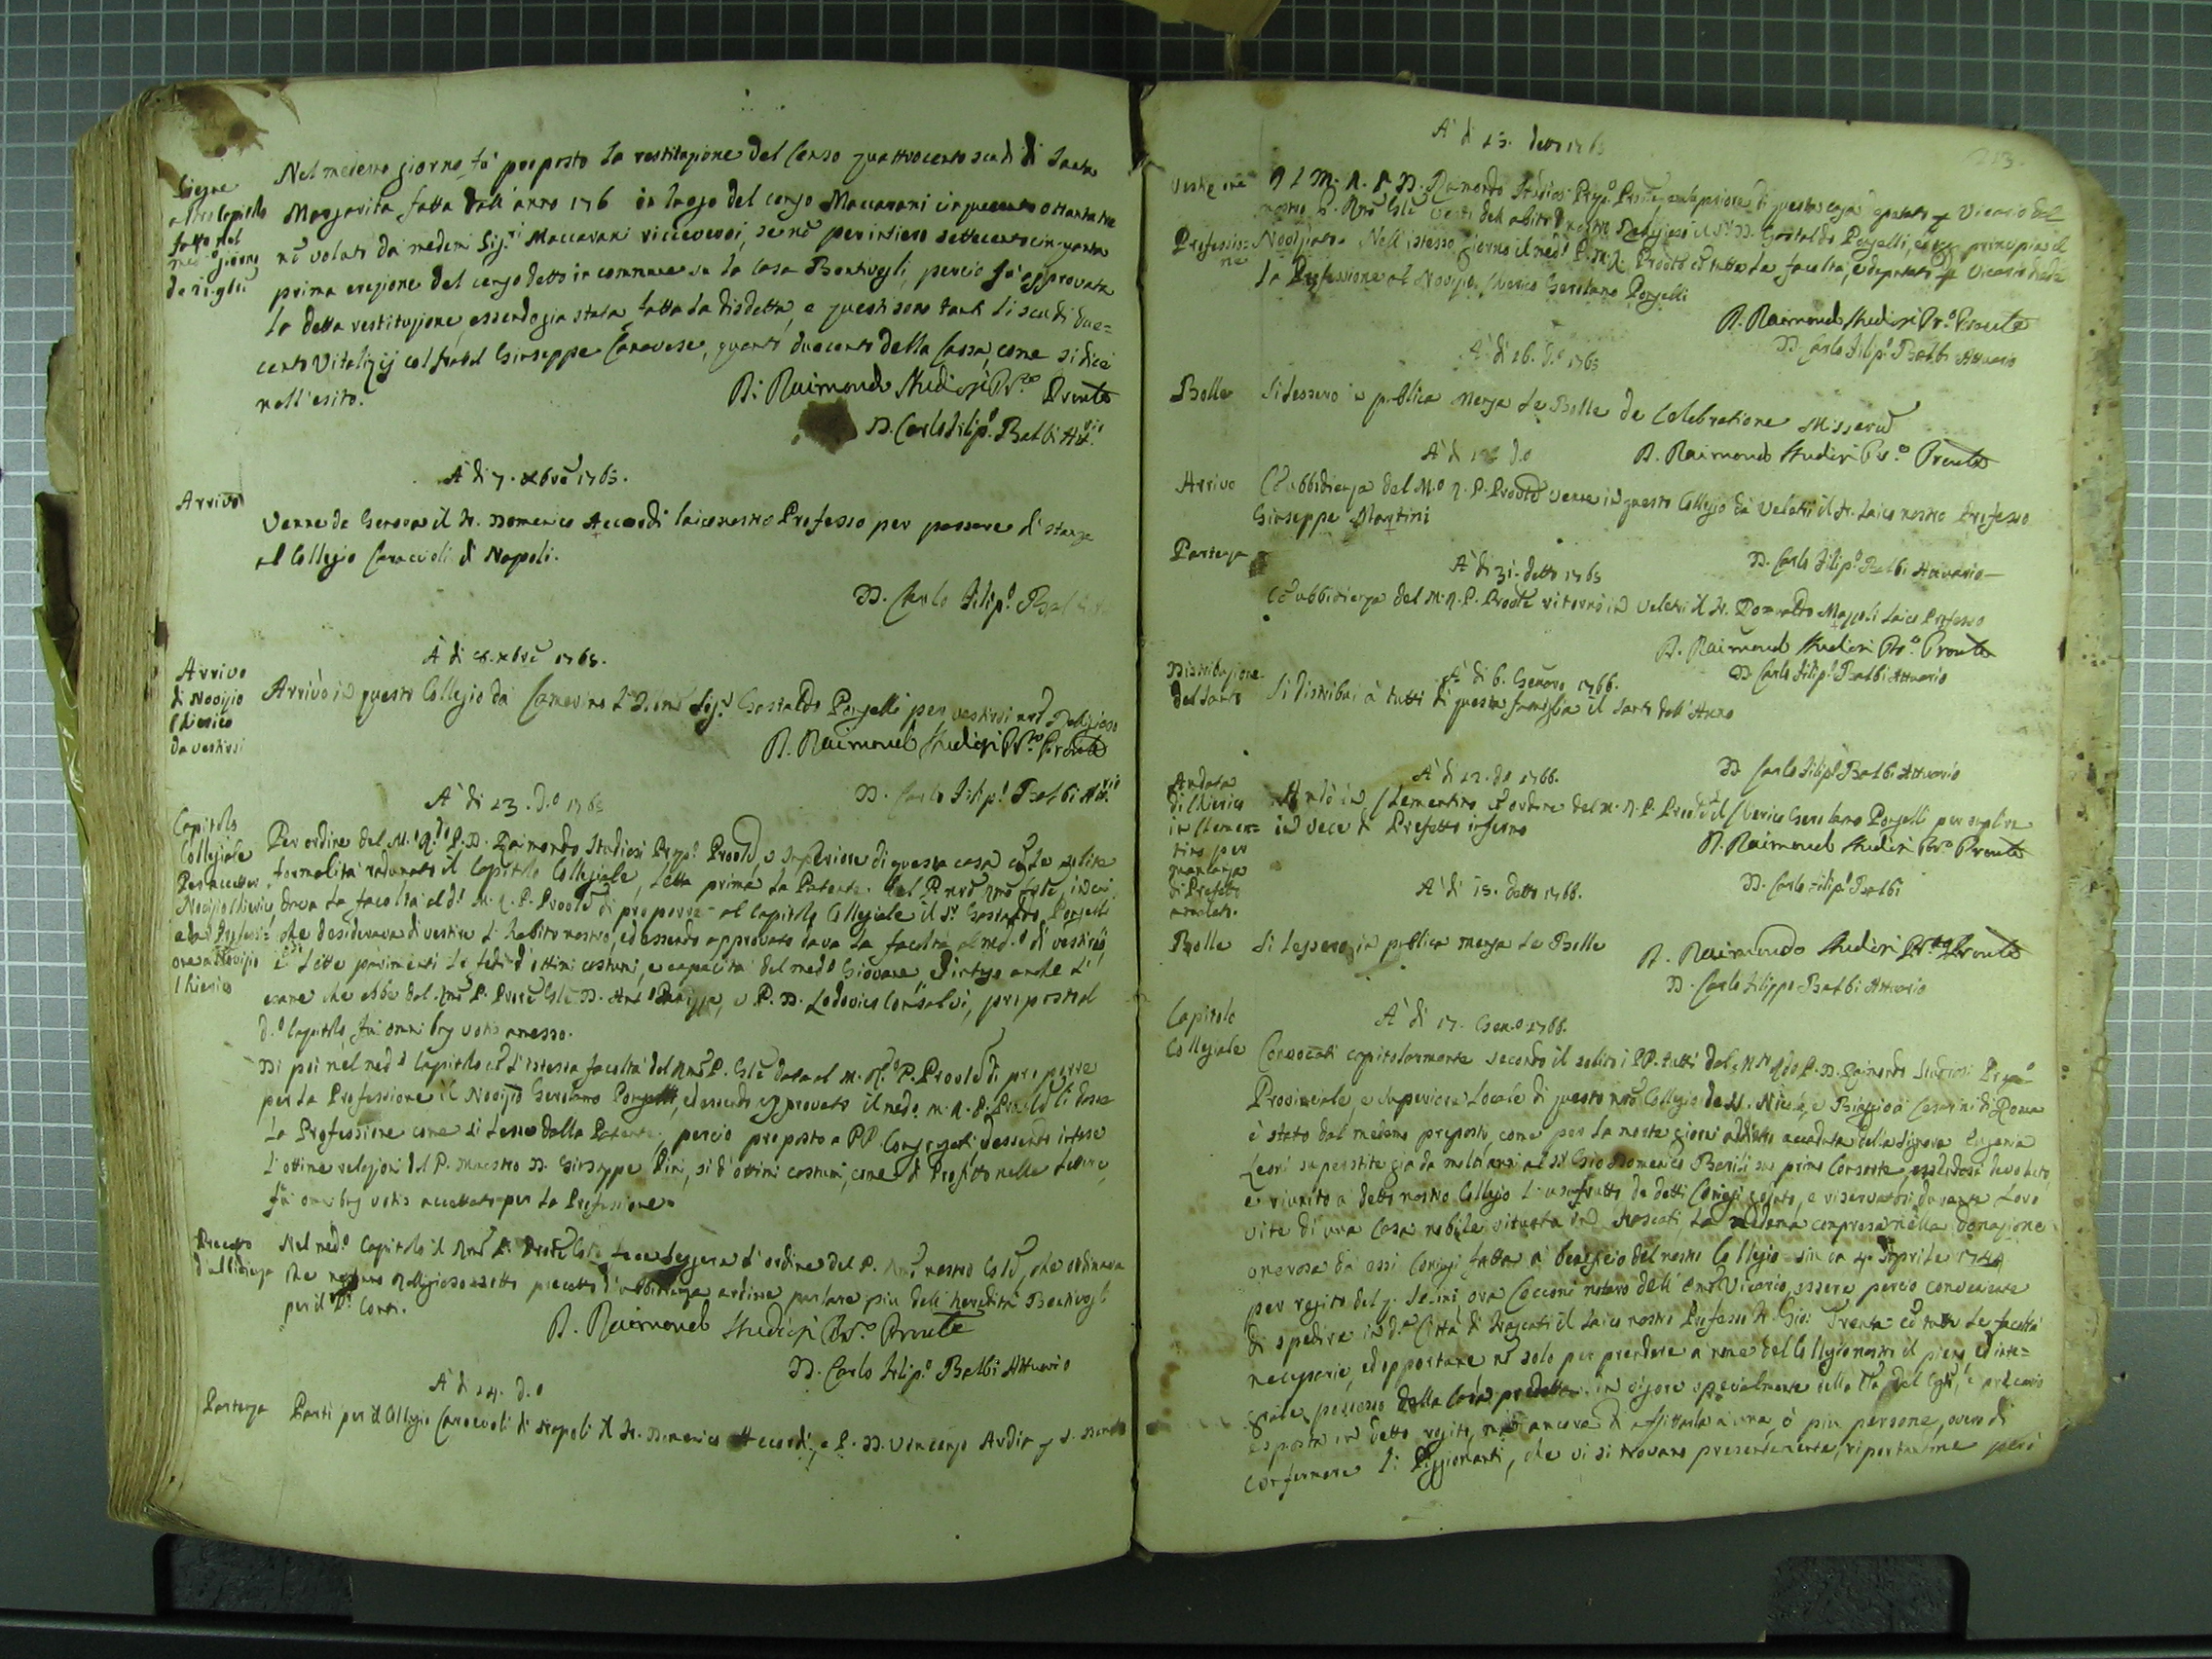 Siegue
altro Capitolo
fatto nel
med.o giorno
Nel medemo giorno fù proposto la restituzione del Censo quattrocento scudi di Santa
Margarita fatta dall'anno 176 in luogo del censo Maccarani cinquecento ottanta tre
nō voluti da medemi Sig.ri Maccarani riceversi, se nō per intiero settecento cinquanta
prima erezione del censo detto in commune su la Casa Bentivogli, perciò fù approvata
la detta restituzione, essendo gia stata fatta la disdetta, e questi sono tanti li scudi due=
cento Vitalizij col fratel Giuseppe Canavese, quanto duecento della Cassa, come si dice
nell'esito.
D. Raimondo Studiosi Pre.to Prov.le
D. Carlo Filip.o Balbi Att.rio
A di 7. Xbre 1765.
Arrivo
Venne da Genova il fr. Domenico Accordi laico nostro Professo per passare di stanza
al Collegio Caraccioli di Napoli.
D. Carlo Filip.o Balbi
A di Xbre 1765.
Arrivo
di Novizio
Chierico
da vestirsi
Arrivò in questo Collegio da Camerino Sig.r Gastaldo Ponzelli per vestirsi nrō Religioso
D. Raimondo Studiosi Pre.to Prov.le
D. Carlo Filip.o Balbi Att.rio
A di 23. D.o 1765
Capitolo
Collegiale
Per accettar
Novizio Chierico
e la Professi=
one a Novizio
Chierico
Per ordine del M.o R.do P. D. Raimondo Studiosi Prep.o Prov.le, e Superiore di questa casa cō le solite
formalità radunato il Capitolo Collegiale, letta prima la Patente del P. nrō Rmō Gnle, in cui
dava la facoltà al d.o M. R. P. Prov.le di proporre al Capitolo Collegiale il Sr. Gastaldo Ponzelli
che desiderava di vestire l'habito nostro, ed essendo approvato dava la facoltà al med.o di vestirlo,
e lette parimenti le fedi d'ottimi costumi, e capacità del med.o Giovane inteso anche l'
esame che ebbe dal P. D. e P. D. Lodovico Consalvi, proposto al
d.o Capitolo, fù omnibus votis amesso.
Di poi nel med.o Capitolo cō l'istessa facoltà del Rmō P. Gnle data al M. R. P. Prov.le di proporre
per la Professione il Novizio Gerolamo Ponzelli, ed essendo approvato il med.o M. R. P. Prov.le li dasse
la Professione come si lesse dalla Patente, perciò proposto a PP. Congregati, ed essendo intese
l'ottime relazioni del P. Maestro D. Giuseppe Pini, si d'ottimi costumi, come di Profitto nelle lettere,
fù omnibus votis accettato per la Professione.
Precetto
d'ubbidienza
Nel med.o Capitolo il Rmō P. fece leggere l'ordine del P. Rmō nostro Gnle, che ordinava
che nessuno Religioso sotto precetto d'ubbidienza ardisse parlare piu dell'heredità Bentivogli
per il
D. Raimondo Studiosi Pre.o Prov.le
D. Carlo Filip.o Balbi Attuario
A di 24. D.o
Partenza
Partì per il Collegio Caraccioli di Napoli il fr. Domenico Accordi, e P. D. Vincenzo
213.
A di 25. detto 1765
Vestizione
Il M. R. P. D. Raimondo Studiosi Prep.o Prov.le, e superiore di questa casa Vicario del
nostro P. Rmō Gnle vesti dell'abito di nostro Religioso il Sr. D. Gastaldo Ponzelli, principiò il
Professio=
ne
Noviziato. Nell'istesso giorno il med.o P. M. R. Prov.le cō tutta la facoltà, e deputato Vicario diede
la Professione al Novizio Chierico Gerolamo Ponzelli
D. Raimondo Studiosi Pr.o Prov.le
D. Carlo Filip.o Balbi Attuario
A di 26. D.o 1765
Bolle
Si lessero in publica mensa le Bolle de Celebratione Missarū
D. Raimondo Studiosi Pr.o Prov.le
A di D.o
Arrivo
Cō ubbidienza del M.o R. P. Prov.le venne in questo Collegio da Veletri il fr. laico nostro Professo
Giuseppe Martini
D. Carlo Filip.o Balbi Attuario
Partenza
A di 31. detto 1765
Cō ubbidienza del M. R. P. Prov.le ritornò in Veletri il fr. Mazzoli laico Professo
D. Raimondo Studiosi Pr.o Prov.le
D. Carlo Filip.o Balbi Attuario
A di 6. Genaro 1766.
Distribuzione
del Santo
Si distribuì a tutti di questa famiglia il Santo dell'Anno
D. Carlo Filip.o Balbi Attuario
A di 12. d.o 1766.
Andata
di Chierico
in Clemen=
tino per
mancanza
di Prefetto
Andò in Clementino cō ordine del M. R. P. Prov.le il Chierico Gerolamo Ponzelli per suplire
in vece di Prefetto infermo
D. Raimondo Studiosi Pr.o Prov.le
D. Carlo Filip.o Balbi
A di 15. detto 1766.
Bolle
Si lessero in publica mensa le Bolle
D. Raimondo Studiosi Pr.to Prov.le
D. Carlo Filippo Balbi Attuario
A di 17. Gen.o 1766.
Capitolo
Collegiale
Convocati capitolarmente secondo il solito i PP. tutti dal M.to R.do P. D. Raimondo Studiosi Prep.o
Provinciale, e Superiore Locale di questo nrō Collegio de SS. Nicolò, e Biaggio a Cesarini di Roma
è stato dal medemo proposto, come per la morte giorni addietro accaduta della Signora Eugenia
Leori superstite gia da molti anni al Sr. Gio: Domenico Barili suo primo Consorte, essendosi devoluto,
e riunito à detto nostro Collegio l'usufrutto da detti Coniugi goduto, e riservatosi durante loro
vite di una Casa nobile situata in Frascati, la medema compresa nella donazione
onerosa da essi Coniugi fatta à beneficio del nostro Collegio sin da 4. Aprile 1744
per rogito del q. ora Cocconi notaro dell'Emō Vicario, essere perciò conveniente
di spedire in d.a Città di Frascati il laico nostro Professo fr. Gio: Trenta cō tutte le facoltà
necessarie, ed opportune nō solo per prendere à nome del Collegio nostro il pieno, ed inte=
grale possesso della Casa predetta in vigore specialmente della Cl.a del Cost.o, e precario
esposta in detto rogito, mà ancora di affittarla à una, ò più persone, overo di
confermare li Piggionanti, che vi si trovano presentemente, riportandone però